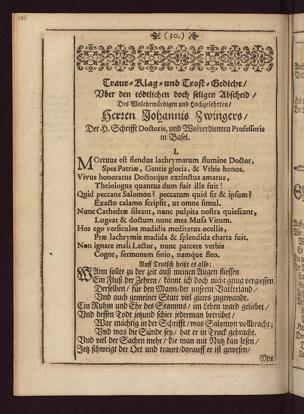 (30.)
Traur-Klag-und Trost-Gedicht/
Vber den tödtlichen doch seligen Abscheid/
Des Wolehrwürdigen und Hochgelehrten/
Herren Johannis Zwingers,
Der H. Schrifft Doctoris, und Wolverdienten Professoris
in Basel.
I.
Mortuus est flendus lachrymarum flumine Doctor,
Spes Patriæ, Gentis gloria, & Vrbis honos.
Vivus honoratus Doctorque extinctus amatus,
Theiologus quantus dum fuit ille fuit!
Quid peccans Salomon? peccatum quid sit & ipsum?
Exacto calamo scripsit, ut omne simul.
Nunc Cathedræ sileant, nunc pulpita nostra quiescant,
Lugeat & doctum nunc mea Musa Virum.
Hos ego versiculos madidis meditatus ocellis,
Præ lachrymis madida & splendida charta fuit.
Non ignare mali Lector, nunc parcere verbis
Cogor, sermonem finio, namque fleo.
Auff Teutsch heißt es also:
Wann sollte zu der zeit auß meinen Augen fliessen
Ein Fluß der Zehren/ könnt ich doch nicht gnug vergiessen
Derselben/ für den Mann/der unserm Vatterland/
Und auch gemeiner Statt viel gutes zugewandt.
Ein Ruhm und Ehr des Stamms/ im Leben ward geliebet/
Und dessen Todt jetzund schier jederman betrübet/
War mächtig in der Schrifft/was Salomon vollbracht;
Und was die Sünde sey/ hat er in Truck gebracht.
Und viel der Sachen mehr/ die man mit Nutz kan lesen/
Jetz schweigt der Ort und traurt/darauff er ist gewesen/